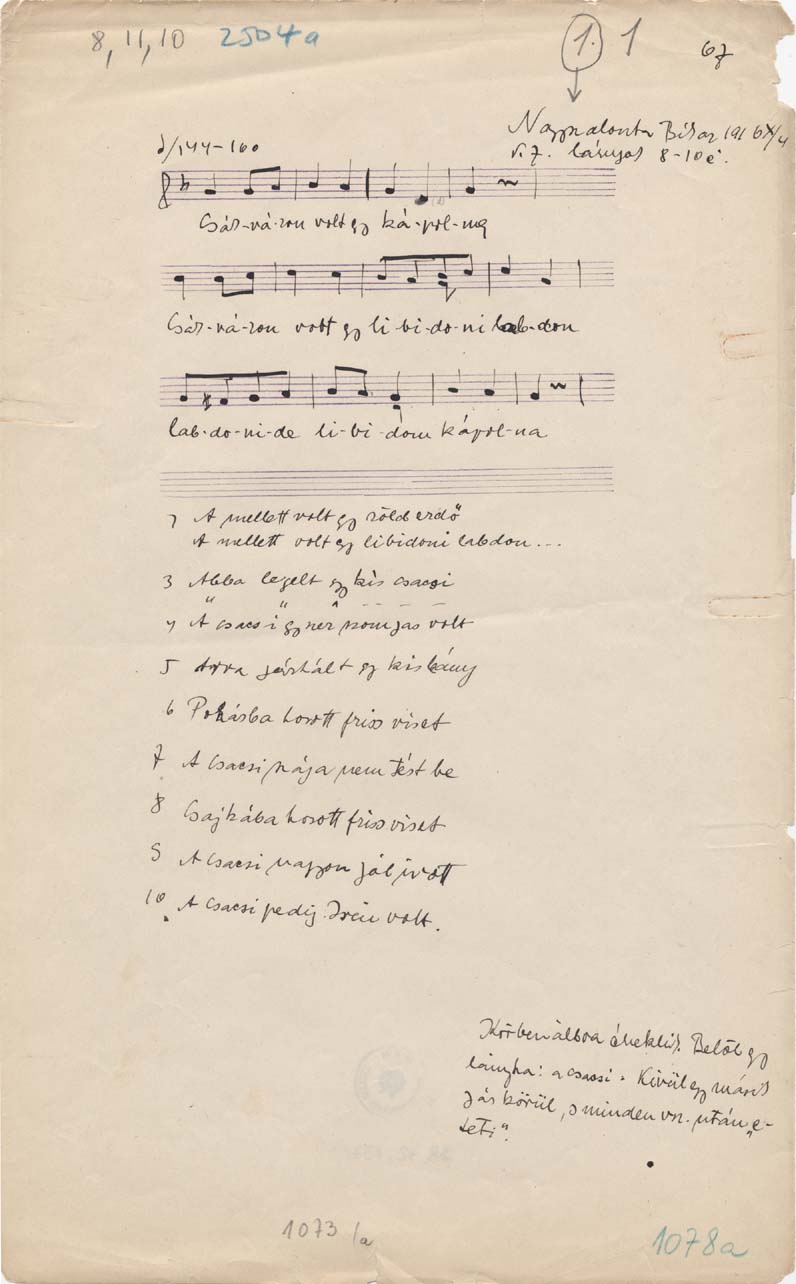 8, 11, 10 2504a 1. 1 67
Nagyszalonta Bihar 1916 X/4
lányok 8-10 é.
♩/144-160
Csár-vá-ron volt egy ká-pol-na
Csár-vá-ron volt egy li-bi-do-ni lab-don
lab-do-ni-de li-bi-dom kápol-na
2 A mellett volt egy zöld erdő
A mellett volt egy libidoni labdon...
3 Abba legelt egy kis csacsi
4 A csacsi egyször szomjas volt
5 Arra sétált egy kislány
6 Pohárba hozott friss vizet
7 A csacsi szája nem fért be
8 Csajkába hozott friss vizet
9 A csacsi nagyon jól ivott
10 A csacsi pedig Irén volt.
Körben állva éneklik. Belől egy
lányka: a csacsi. Kívül egy másik
jár körül, s minden vsz. után „e-
teti".
1073/a
1078a